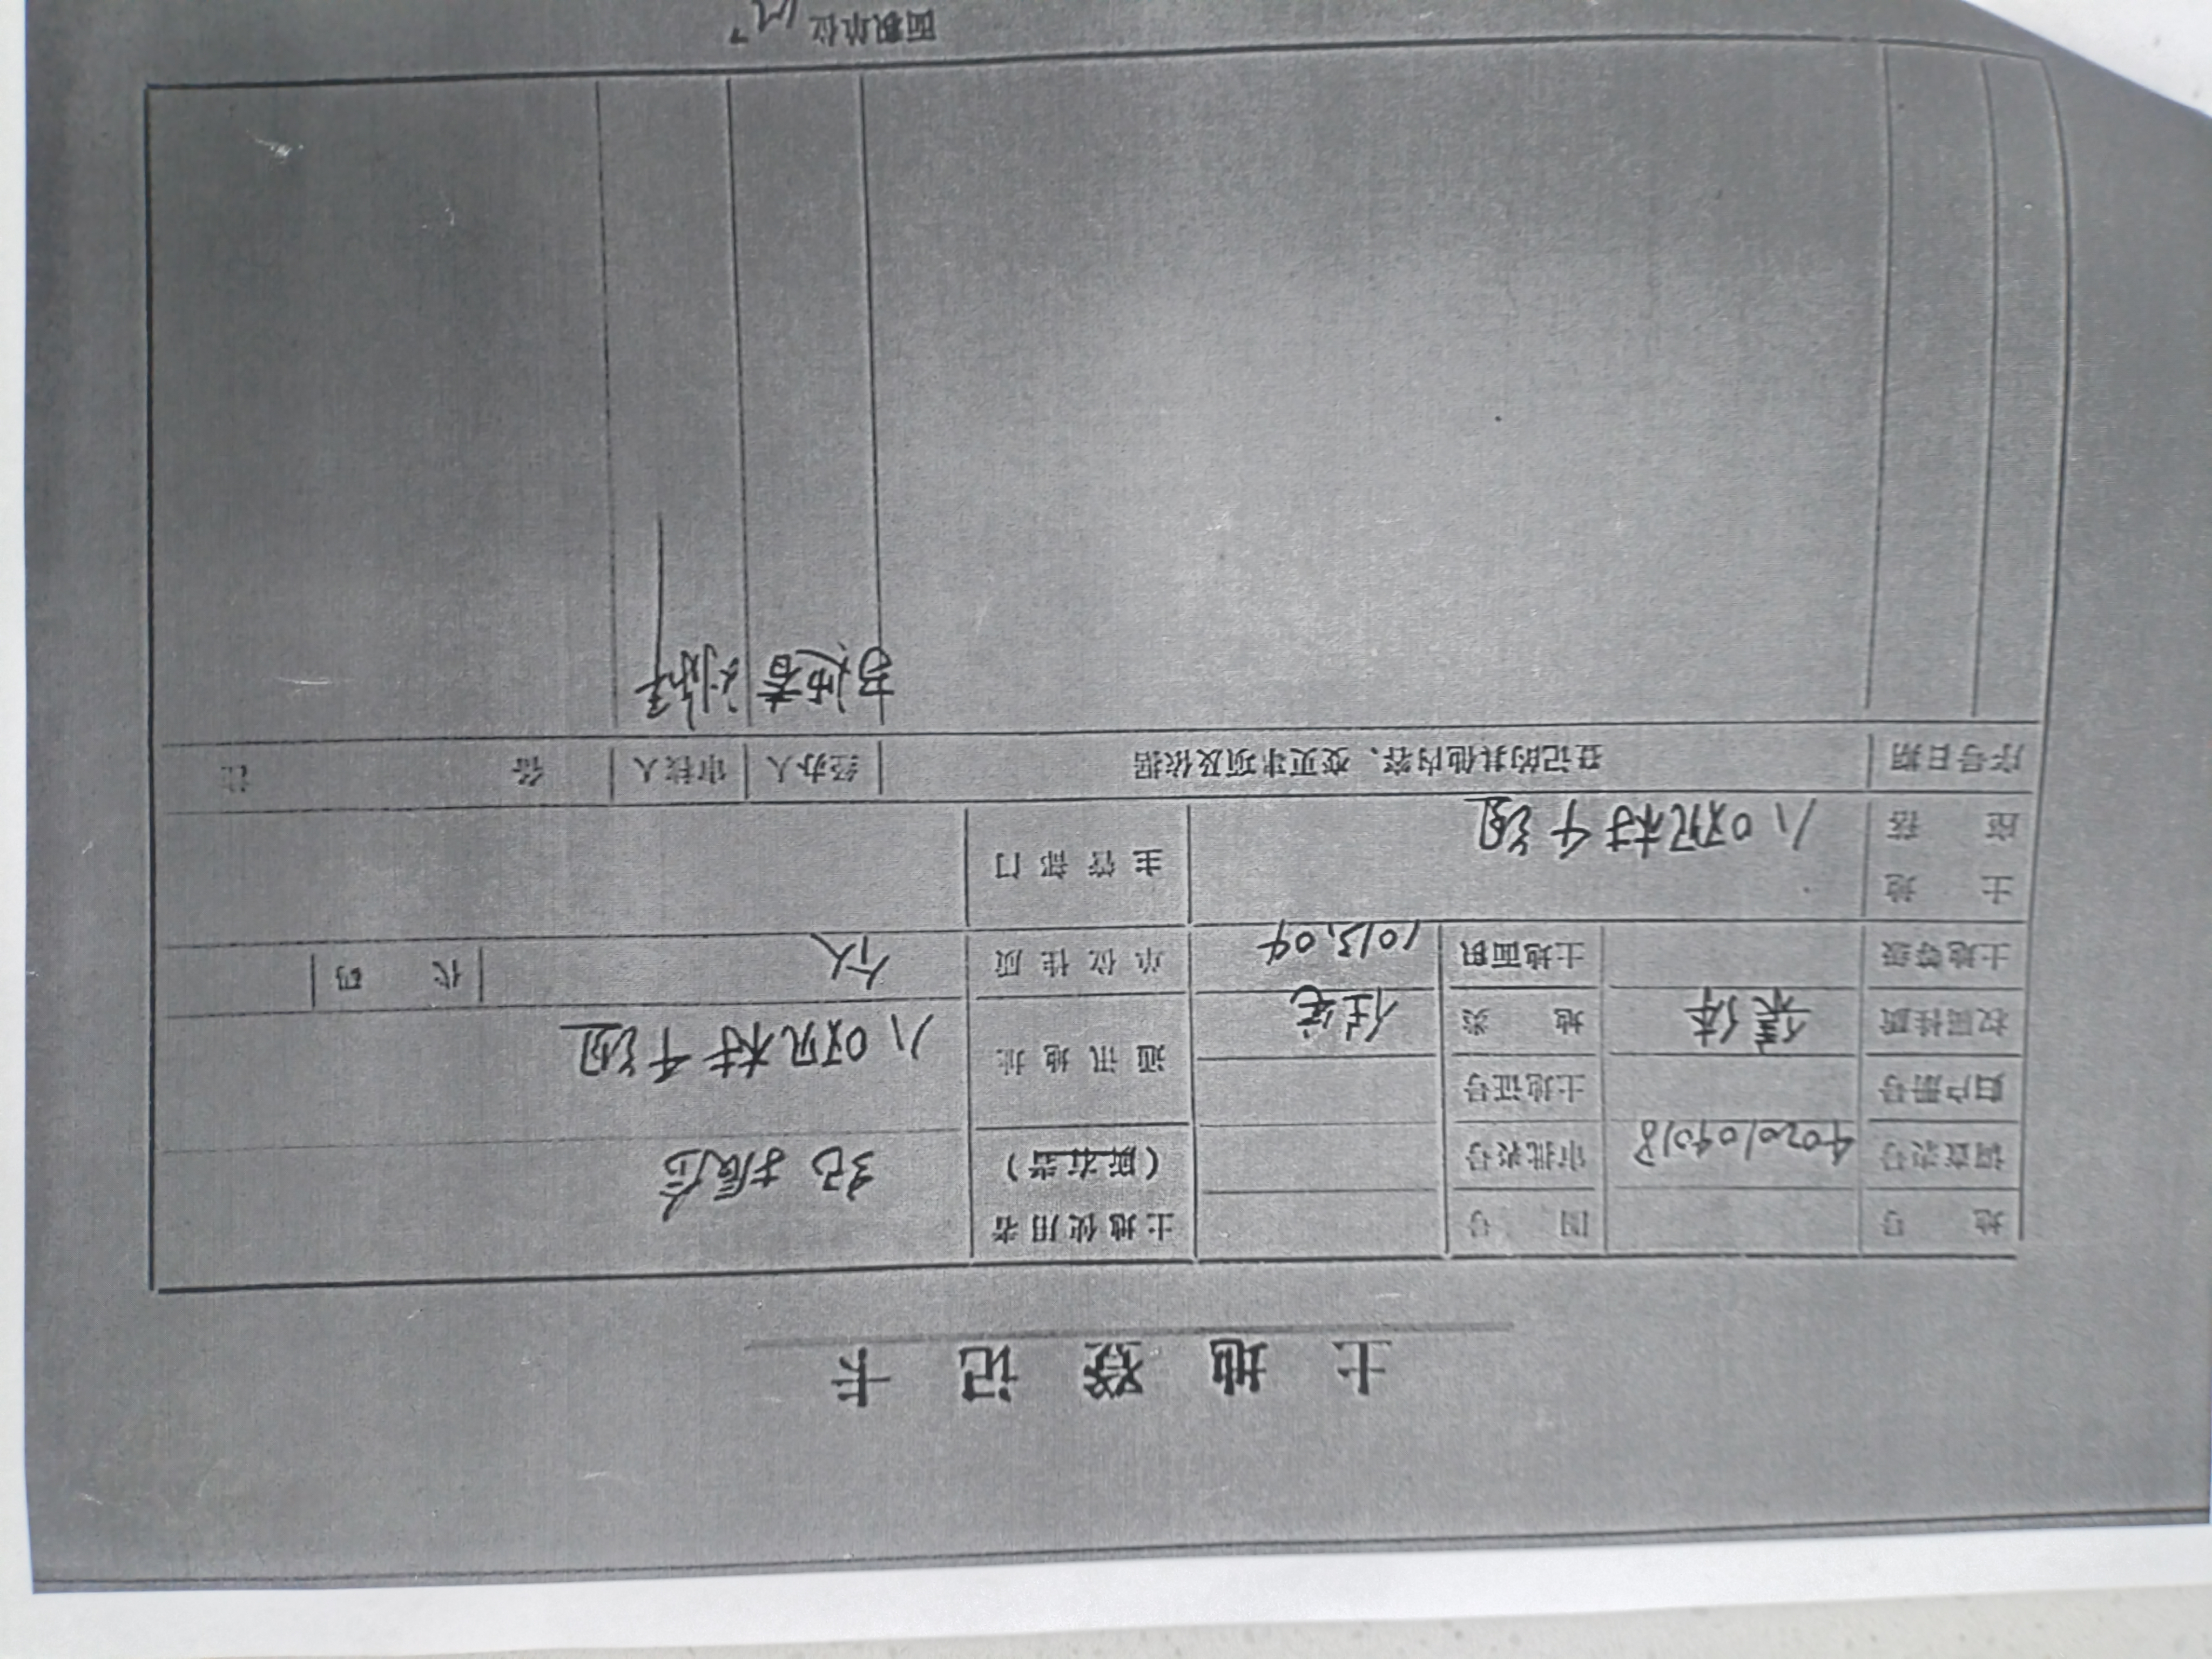 土地登记卡
地 号 图 号 土地使用者
调查表号 4020104018 审批表号 (所有者) 纪振合
归户册号 土地证号 通讯地址 八0双村千组
权属性质 集体 地 类 住宅
土地等级 土地面积 1013.04 单位性质 个人 代 码
土 地
座 落 八0双村千组 主管部门
序号 日期 登记的其他内容、变更事项及依据 经办人 审核人 备 注
面积单位 m²